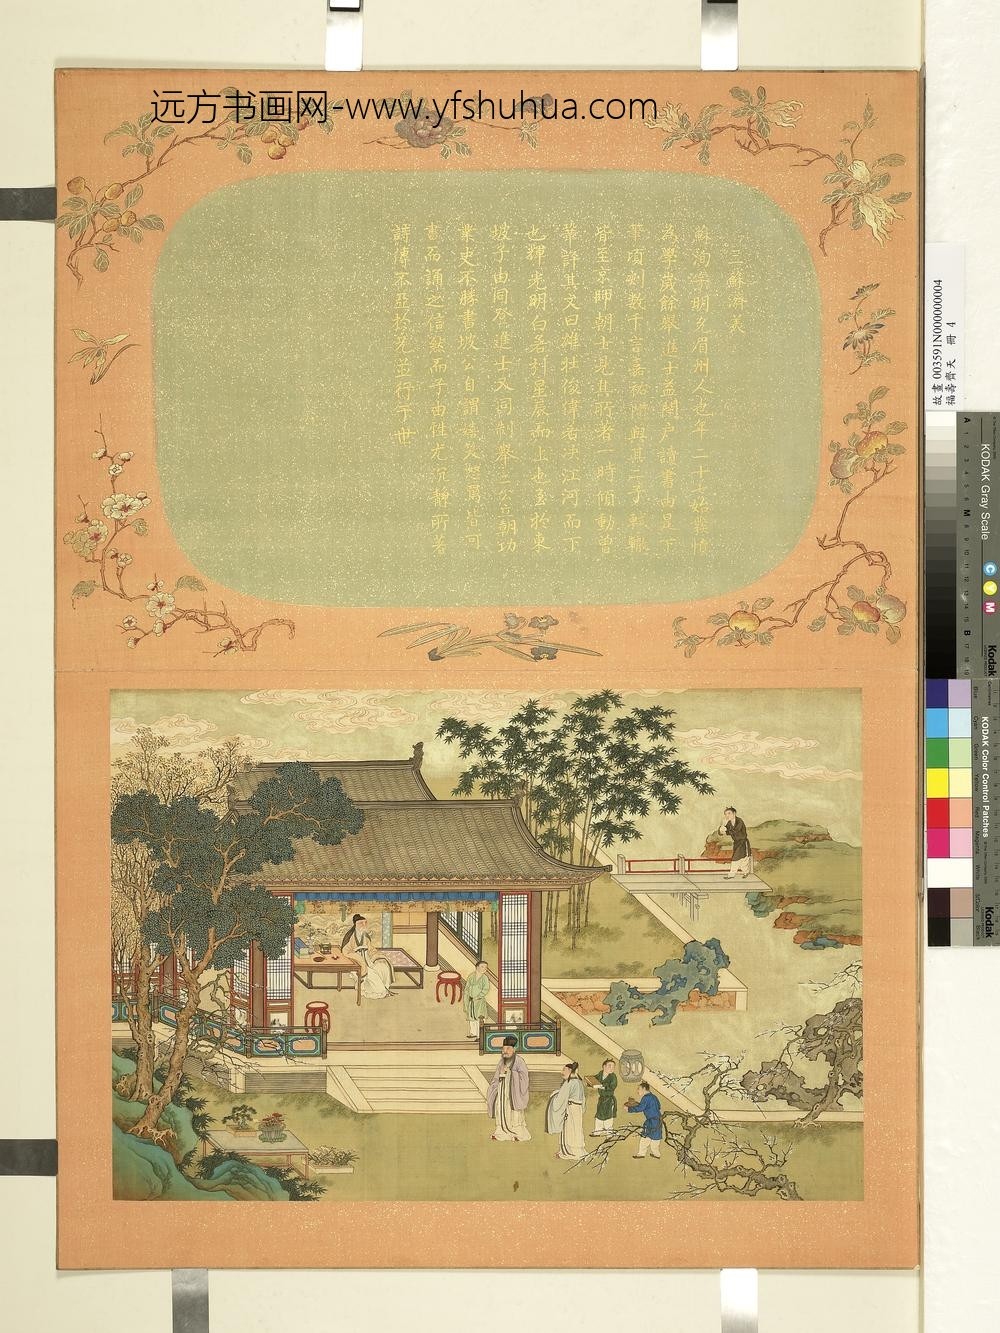 远方书画网-www.yfshuhua.com
三蘇濟美
蘇洵字明允眉州人也年二十七始發憤
為學歲餘舉進士益閉戶讀書由是下
筆頃刻數千言嘉祐間與其二子軾轍
皆至京師朝士見其所著一時傾動曾
鞏評其文曰雄壯俊偉若決江河而下
也輝光明白若引星辰而上也至於東
坡子由同登進士又同制舉二公立朝功
業史不勝書坡公自謂嬉笑怒罵皆可
書而誦之信哉而子由性尤沉靜所著
詩傳不亞於兄並行于世
故畫 003591N000000004
福壽齊天 冊 4
KODAK Gray Scale
C
Y
M
A
M
B
Kodak
KODAK Color Control Patches
Blue
Cyan
Green
Yellow
Red
Magenta
White
3/Color
Black
Kodak